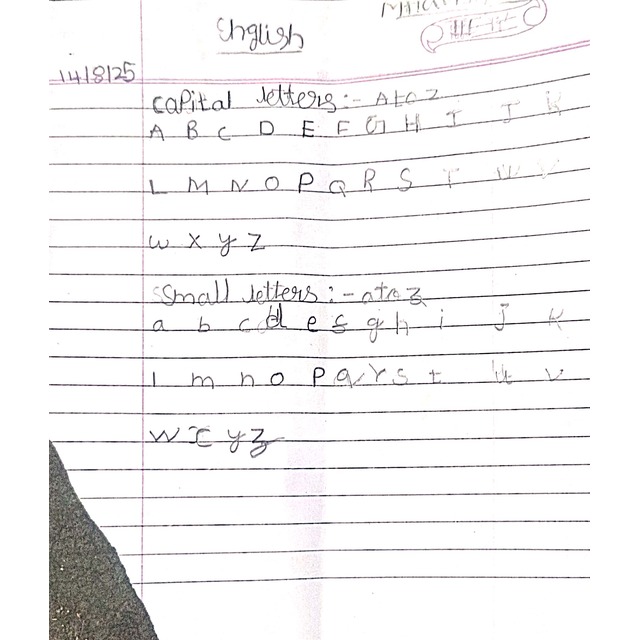 English
14/8/25
Capital letters :- A to Z
A B C D E F G H I J K
L M N O P Q R S T U V
W X Y Z
Small letters :- a to z
a b c d e f g h i j k
l m n o p q r s t u v
w x y z